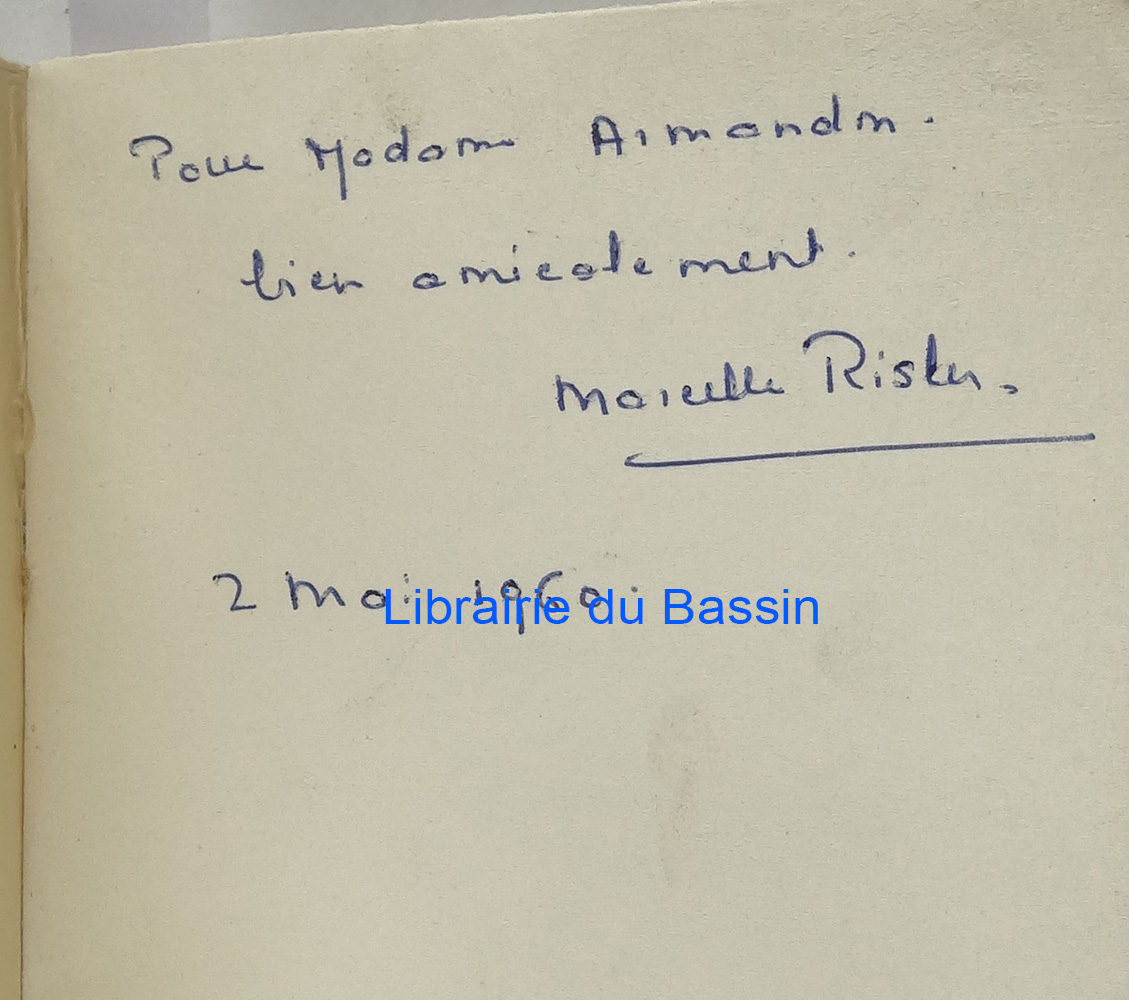 Pour Madame Armandin.
bien amicalement.
Marcelle Risler.
2 Mai 1960.
Librairie du Bassin